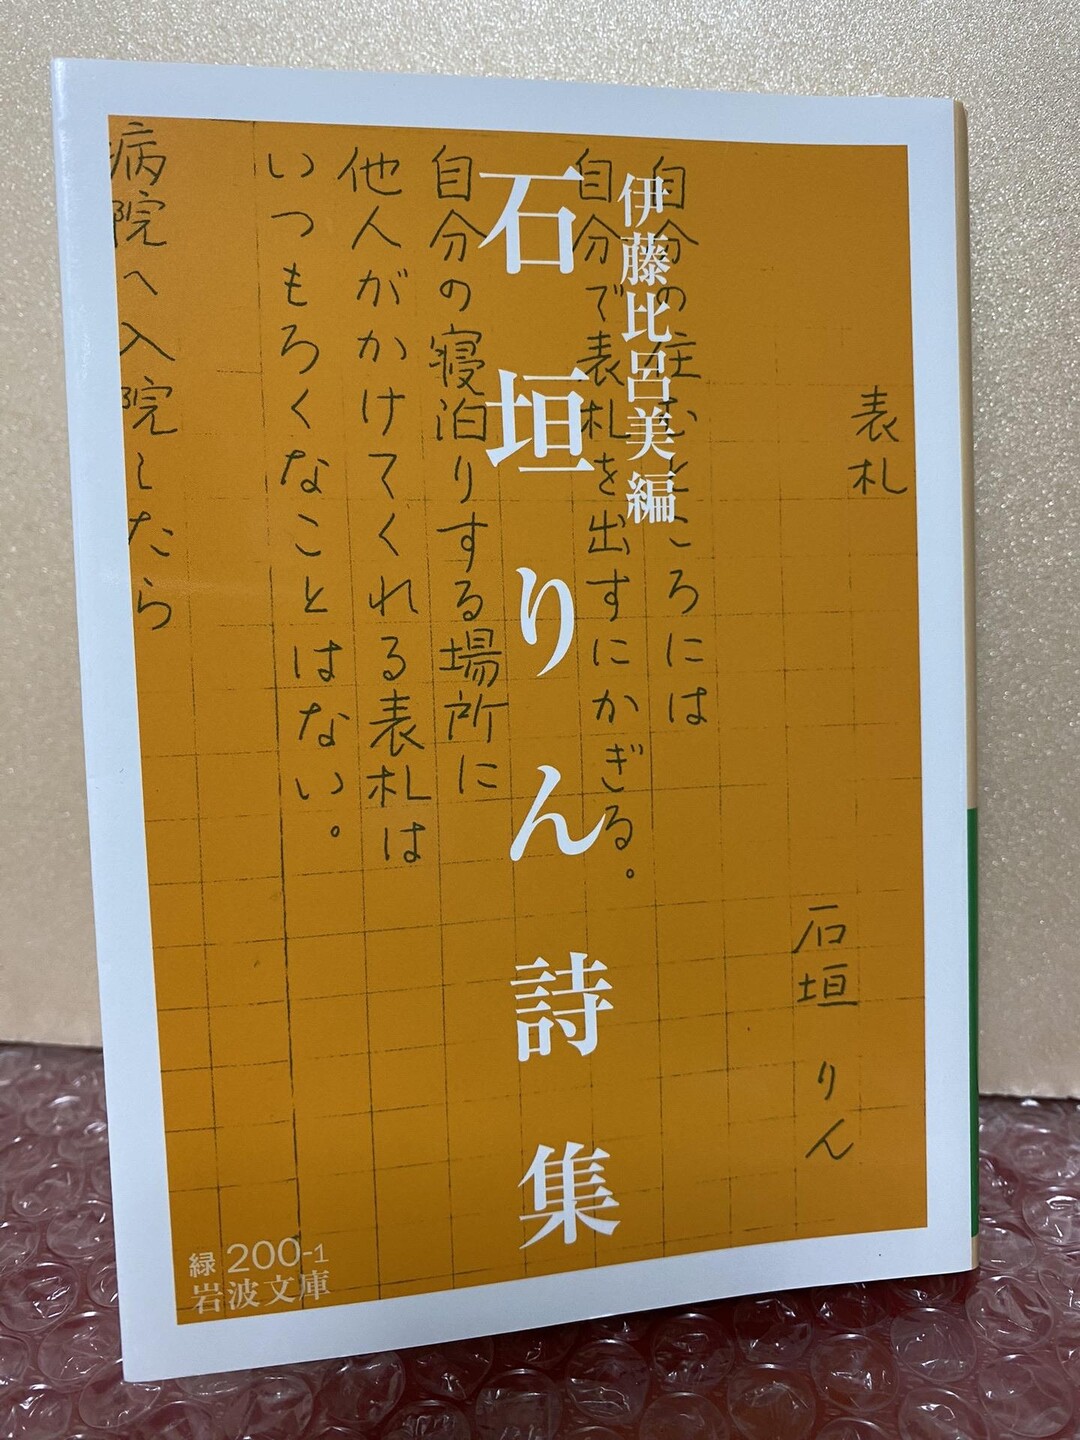 伊藤比呂美編
石垣りん詩集
表札
石垣りん
自分の住むところには
自分で表札を出すにかぎる。
自分の寝泊りする場所に
他人がかけてくれる表札は
いつもろくなことはない。
病院へ入院したら
緑 200-1
岩波文庫